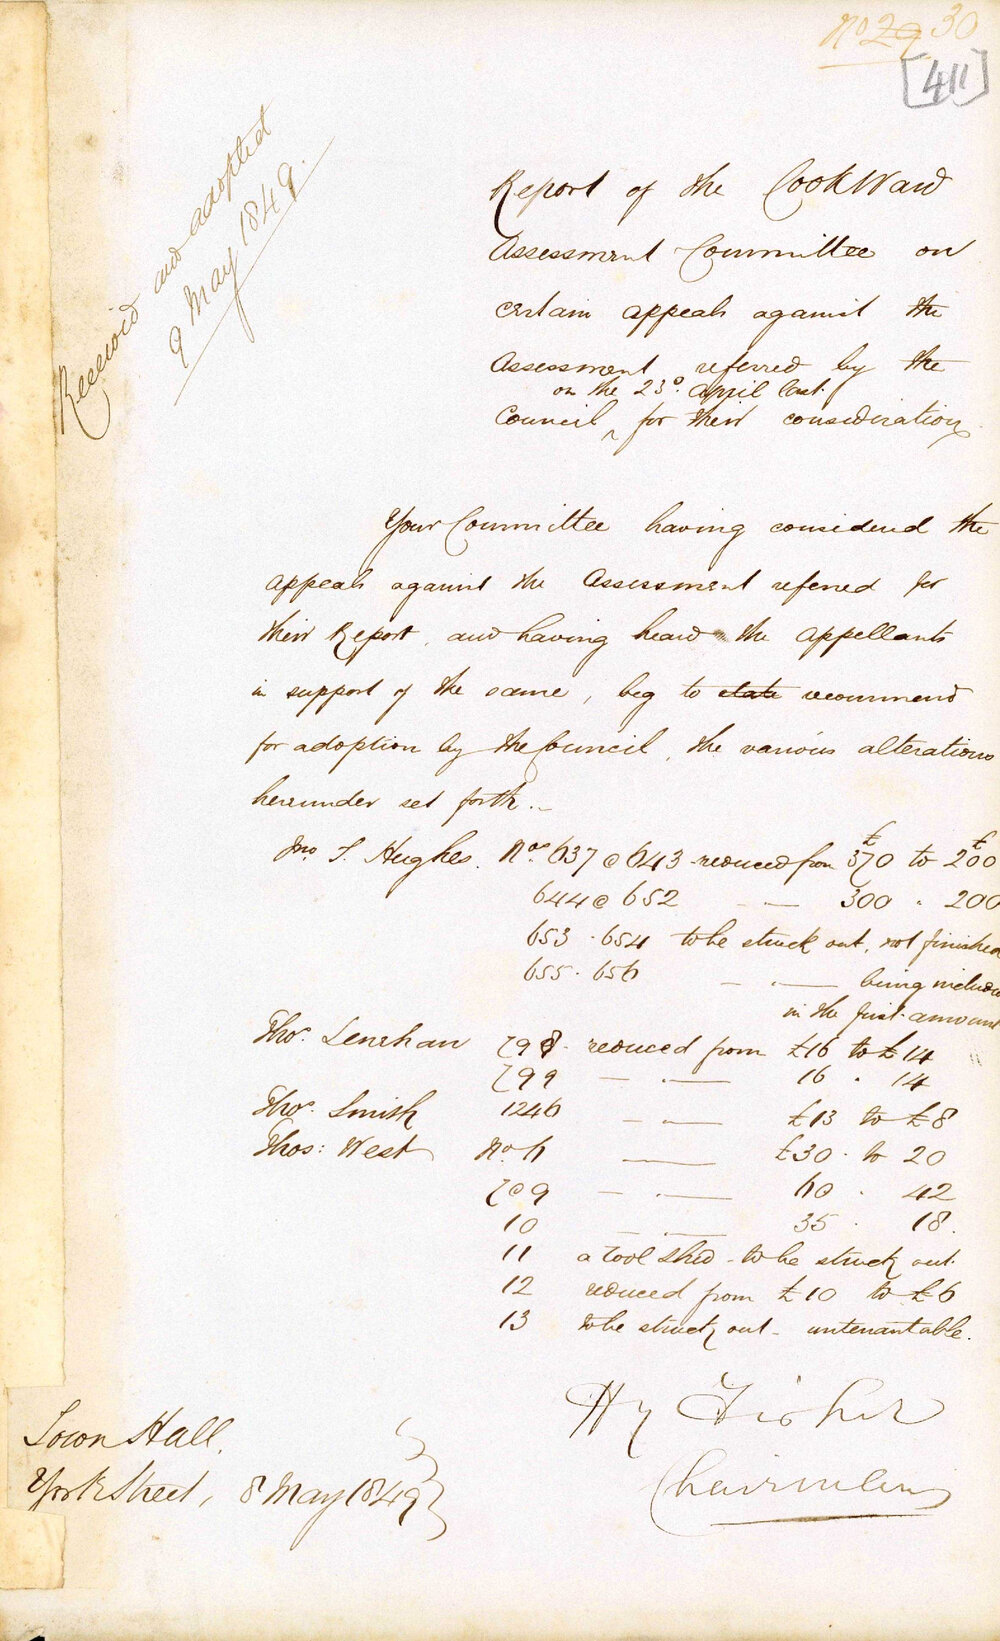 No 29 30
[411]
Received and adopted
9 May 1849.
Report of the Cook Ward
Assessment Committee on
certain appeals against the
Assessment referred by the
on the 23d. April last.
Council ^ for their consideration
Your Committee having considered the
appeals against the Assessment referred for
their Report, and having heard the appellants
in support of the same, beg to state recommend
for adoption by the Council, the various alterations
hereunder set forth.
Jno. T. Hughes. Nos. 637 @ 643 reduced from £370 to £200
644 @ 652 — 300 . 200
653 . 654 to be struck out, not finished
655 . 656 — . — being include
in the first amount
Thos. Lenehan 798 . reduced from £16 to £14
799 — . — 16 . 14
Thos. Smith 1246 — . — £13 to £8
Thos: West No. 6 — £30 . to 20
709 — . — 60 . 42
10 — . — 35 . 18.
11 a tool shed - to be struck out.
12 reduced from £10 to £6
13 to be struck out - untenantable.
Hy Fisher
Chairman
Town Hall,
York Street, 8 May 1849